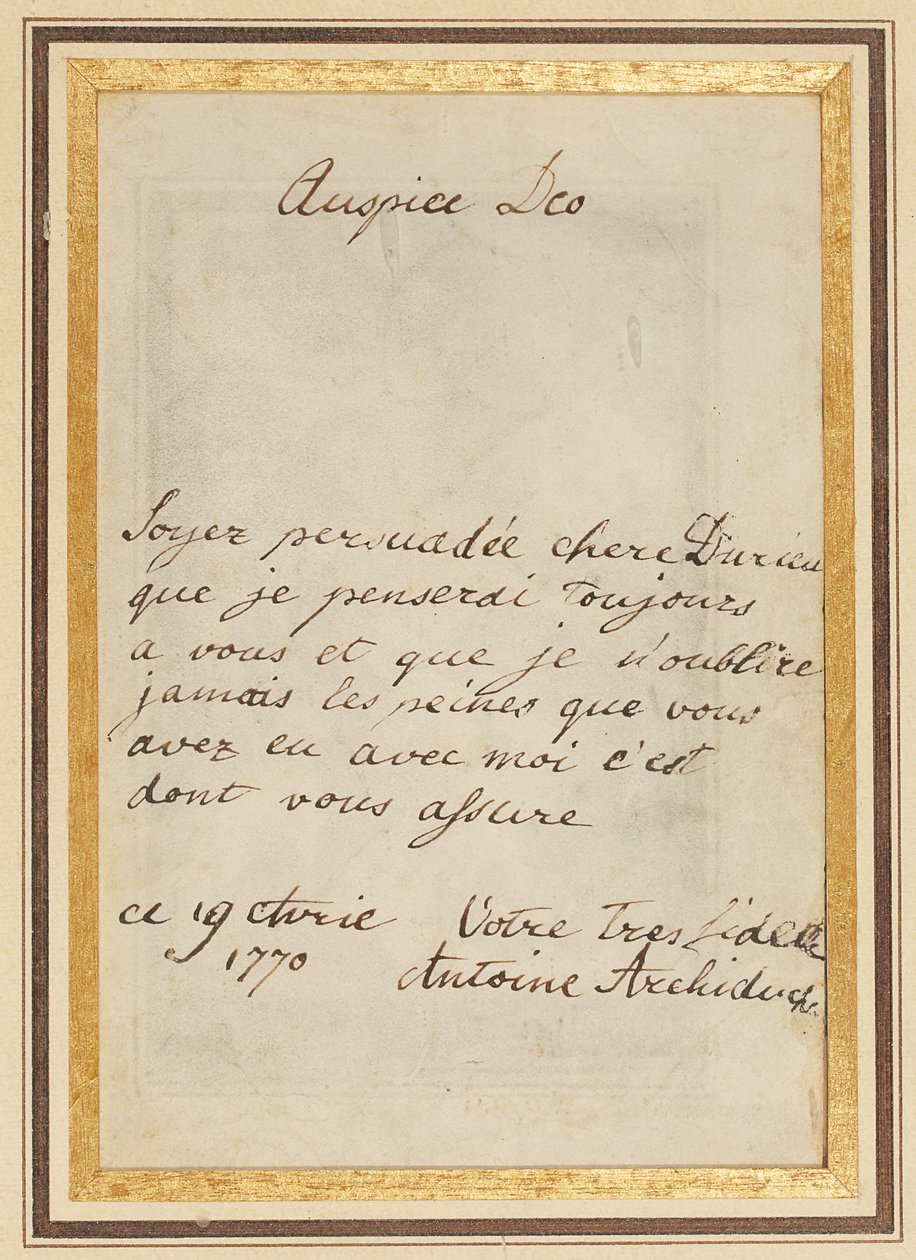 Auspice Deo
Soyez persuadée chere Durieu
que je penserai toujours
a vous et que je n'oublire
jamais les peines que vous
avez eu avec moi c'est
dont vous assure
ce 19 Avrie
1770
Votre tres fidelle
Antoine Archiduch